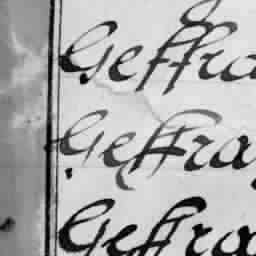 Geffra
Geffra
Geffra